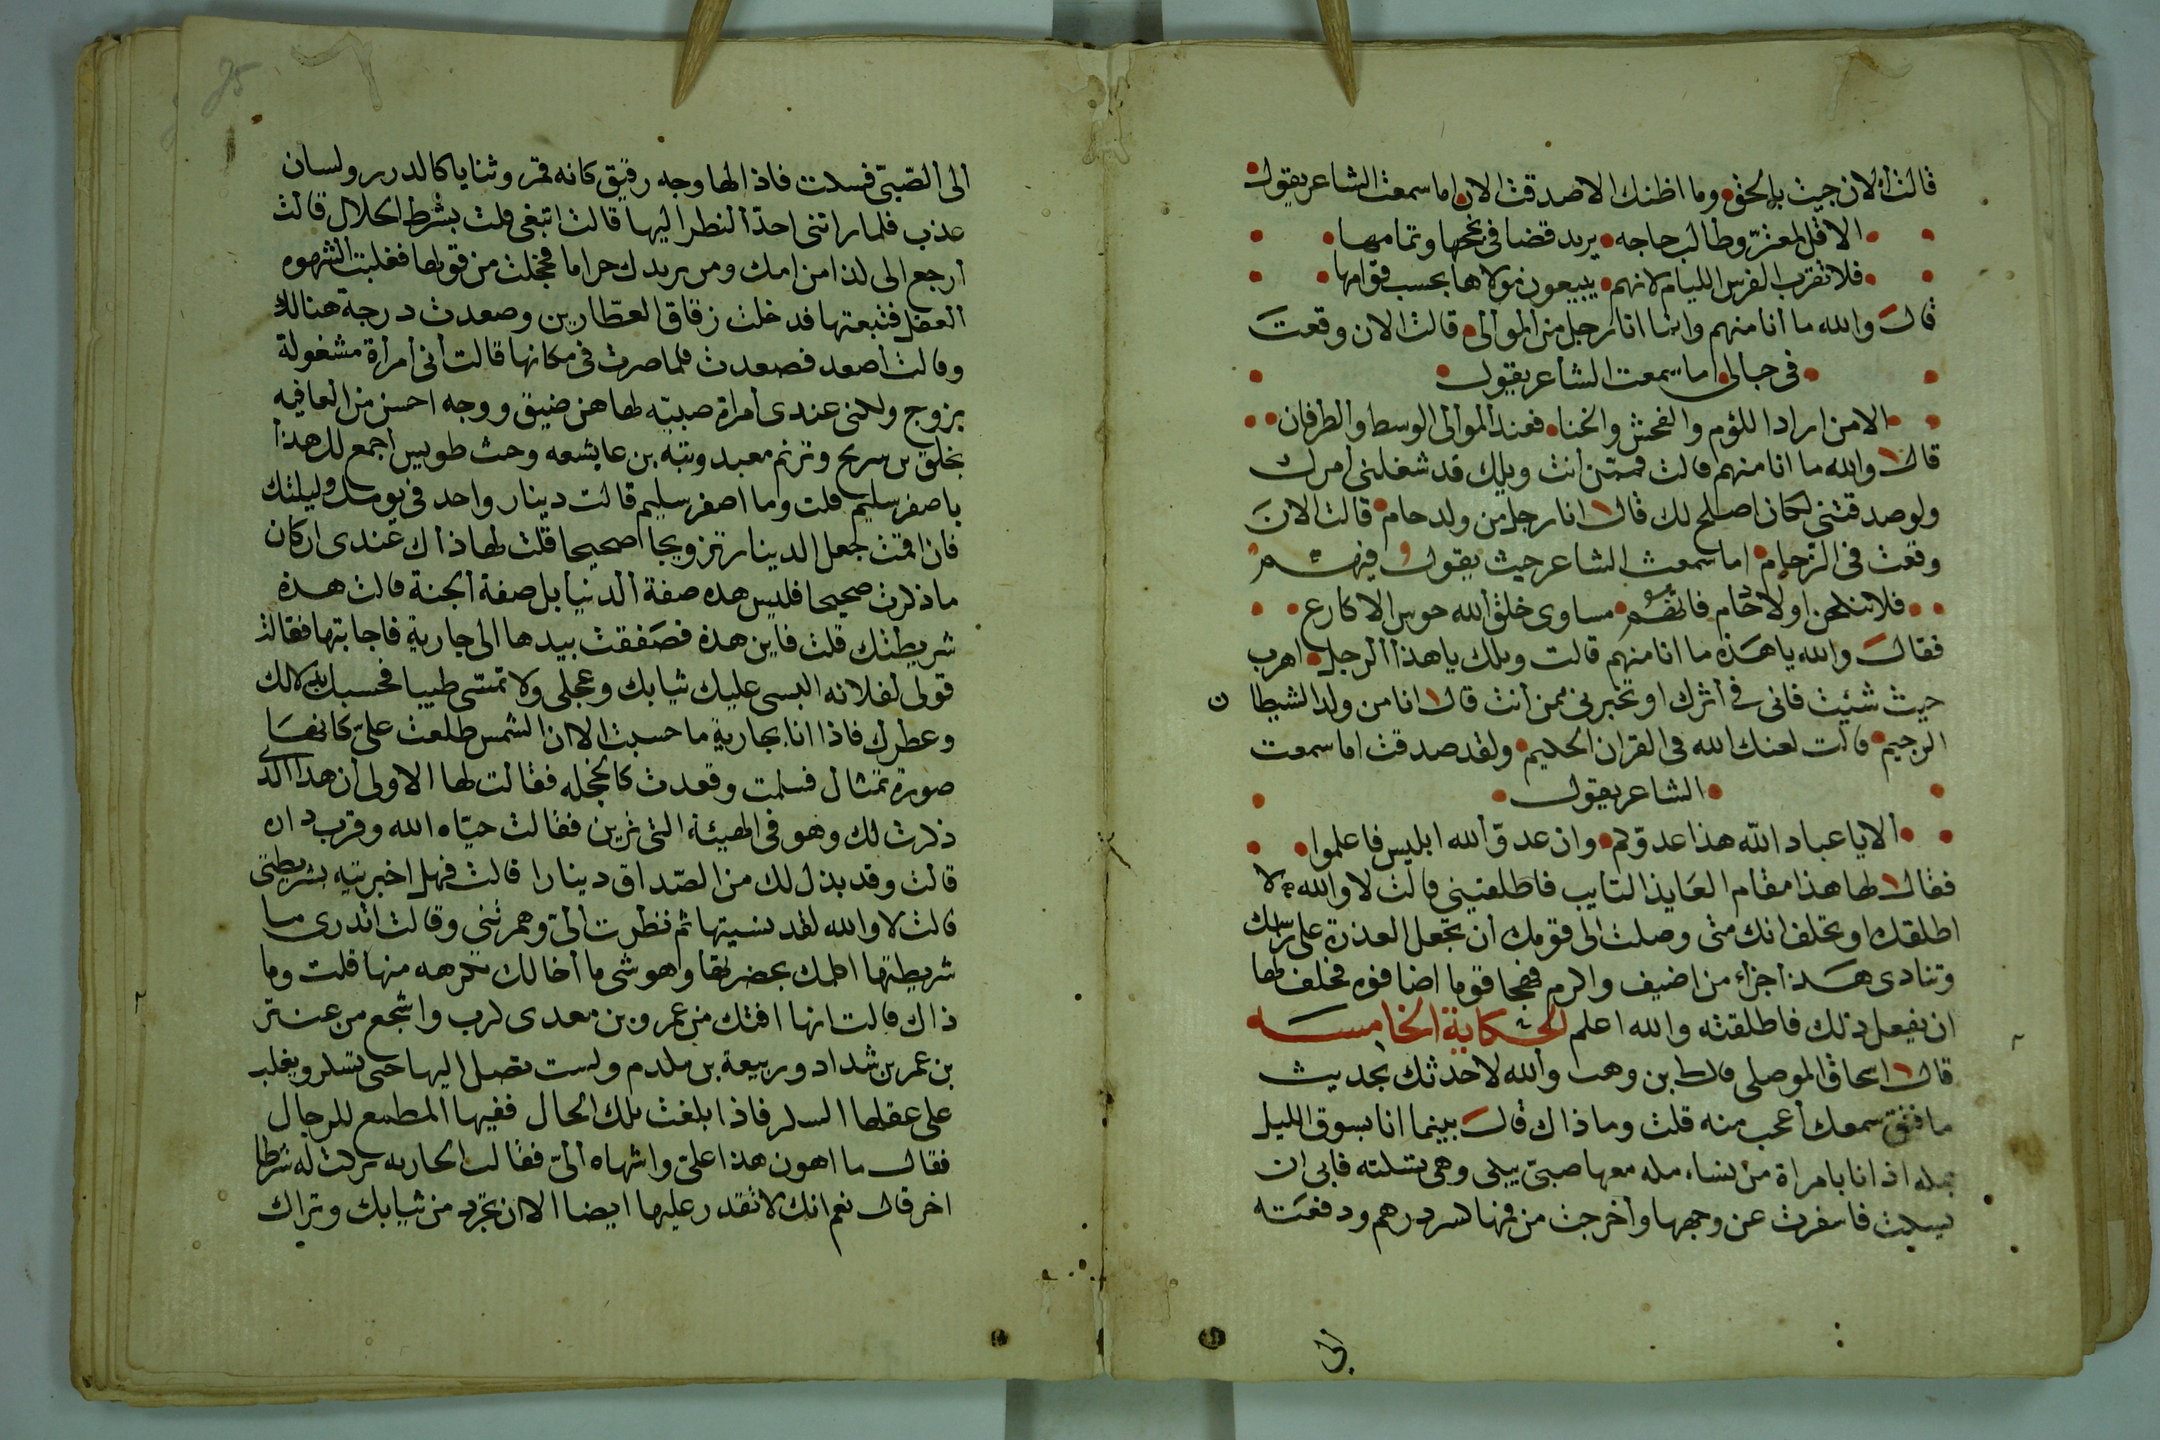 قالت ألان جيت بالحق وما اظنك الا صدقت الان اما سمعت الشاعر يقول
الا قل لمعترّ وطالب حاجه يريد قضا في نجحها وتمامها
فلا تقرب الفرس الليام لانهم يبيعون مولاها بحسب قوامها
قال والله ما أنا منهم وانما انا رجل من ألموألى قالت الان وقعت
في حبالى اما سمعت الشاعر يقول
الا من اراد اللؤم والفحش والخنا فعند ألموألى الوسط والطرفان
قال والله ما انا منهم قالت فممن أنت ويلك قد شغلنى أمرك
ولو صدقتنى لكان اصلح لك قال انا رجل من ولد حام قالت الان
وقعت في الزحام اما سمعت الشاعر حيث يقول فيهم
فلا تنكحن اولاد حام فانهم مساوى خلق ألله حوس الاكارع
فقال والله يا هذه ما انا منهم قالت ويلك يا هذا ألرجل اهرب
حيث شئت فانى في أثرك او تخبرنى ممن أنت قال انا من ولد الشيطان
الرجيم قالت لعنك الله في القران الحكيم ولقد صدقت اما سمعت
الشاعر يقول
ألا يا عباد اللّه هذا عدوّكم وان عدوّ ألله ابليس فاعلموا
فقال لها هذا مقام العَايذ التايب فاطلقينى قالت لا والله لا
اطلقك او تحلف انك متى وصلت الى قومك أن تجعل العذرة على رأسك
وتنادى هذا جزاء من اضيف واكرم فهجا قوما اضافوه فحلف لها
ان يفعل ذلك فاطلقته والله اعلم الحكاية الخامسه
قال اسحاق الموصلى قال ابن وهب وألله لاحدثك بحديث
ما فتق سمعك أعجب منه قلت وما ذاك قال بينما انا بسوق الليل
بمكه اذ انا بامراة من نساء مكه معها صبىّ يبكى وهى تسكته فابى ان
يسكت فاسفرت عن وجهها وأخرجت من فيها كسر درهم ودفعته
الى
ألى الصّبىّ فسكت فاذا لها وجه رقيق كانه قمر وثنايا كالدرر ولسان
عذب فلما راتنى احدّ ألنظر اليها قالت اتبغى قلت بشرط الحلال قالت
أرجع الى لذا من امك ومن يريدك حراما فخجلت من قولها فغلبت ألشهوه
ألعقل فتبعتها فدخلت زقاق العطّارين وصعدت درجة هنالك
وقالت أصعد فصعدت فلما صرت في مكانها قالت أنى أمرأة مشغولة
بزوج ولكنى عندى أمراة صبيّه لها هن ضيق ووجه احسن من العافيه
بخلق بن سريج وترنم معبد وتيه بن عايشه وحث طويس اجمع لك هذأ
باصفر سليم قلت وما اصفر سليم قالت دينار واحد في يومك وليلتك
فان اقمت تجعل الدينار تزويجا صحيحا قلت لها ذأك عندى ان كان
ما ذكرت صحيحا فليس هذه صفة ألدنيا بل صفة ألجنة قالت هذه
شريطتك قلت فاين هذه فصَفقت بيدها الى جارية فاجابتها فقالت
قولى لفلانه البسى عليك ثيابك وعجلى ولا تمسّى طيبا فحسبك بدلالك
وعطرك فاذا انا بجارية ما حسبت الا ان الشمس طلعت علىّ كانها
صورة تمثال فسلمت وقعدت كالخجله فقالت لها الاولى أن هذا الذى
ذكرت لك وهو في الهيئة التى ترين فقالت حيّاه الله وقرب داره
قالت وقد بذل لك من الصّداق دينارا قالت فهل اخبرتيه بشريطتى
قالت لا والله لقد نسيتها ثم نظرت ألىّ وغمزتنى وقالت اتدرى ما
شريطتها اكلمك بحضرتها وهو شى ما أخالك تكرهه منها قلت وما
ذاك قالت انها افتك من عمرو بن معدى كرب واشجع من عنتر
بن عمر بن شداد وربيعة بن مكدم ولست تصل اليها حتى تسكر ويغلب
على عقلها السكر فاذا بلغت تلك الحال ففيها المطمع للرجال
فقال ما اهون هذا علىّ واشهاه ألىّ فقالت الجاريه تركت له شرطا
اخر قال نعم انك لا تقدر عليها ايضا الا ان تجرد من ثيابك وتراك